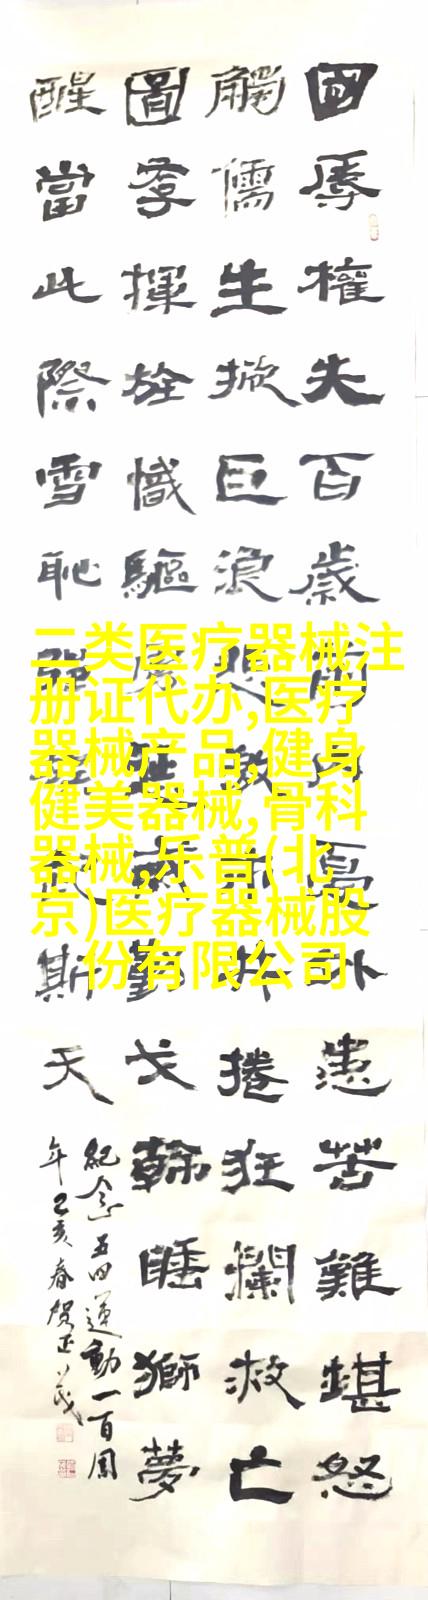 國辱權失百歲前內憂外患苦難堪怒
觸儒生掀巨浪捲狂瀾救亡
圖存揮旌幟驅戈斡睡獅夢
醒當此際雪恥強斯天
紀念五四運動一百周
年己亥春賀正茂
二类医疗器械注
册证代办,医疗
器械产品,健身
健美器械,骨科
器械,乐普(北
京)医疗器械股
份有限公司